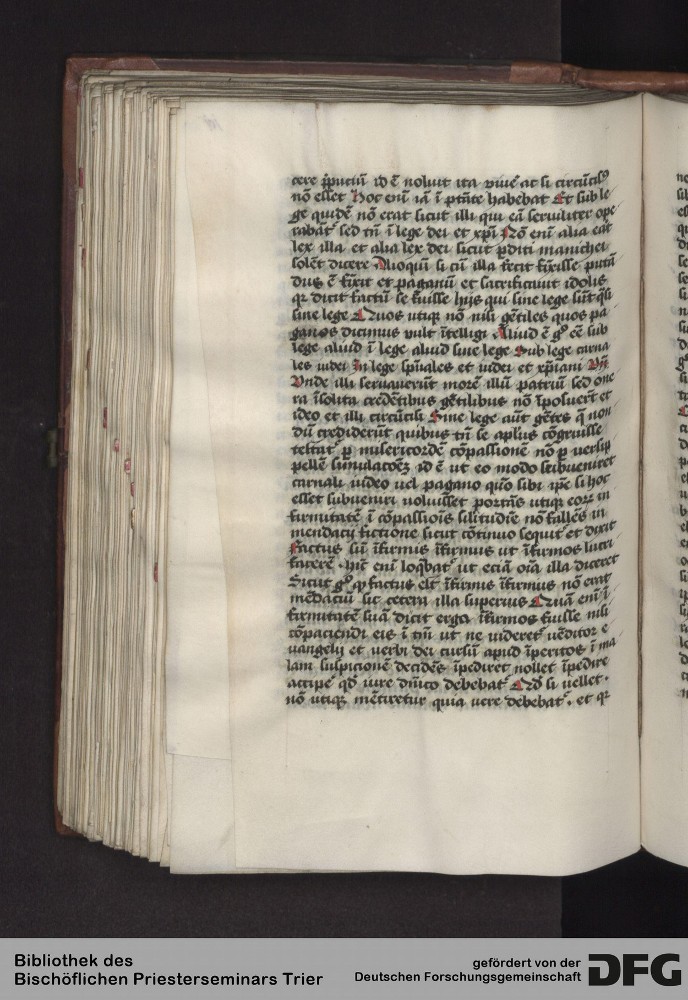 cere p̄puciū id ē noluit ita viue᷑ at si circūcisꝰ
nō esset Hoc enī iā ī p̄tāte habebat Et sub le
ge quidē nō erat sicut illi qui eā seruiliter ope
rabāt᷑ sed tn̄ ī lege dei et xp̄i Nō enī alia erat
lex illa et alia lex dei sicut p̄diti manichei
solēt dicere Alioquī si cū illa fecit fīxisse putād
dus ē fīxit et paganū et sacrificauit idolis
qꝛ dicit factū se fuisse hijs qui sine lege sūt q̄si
sine lege Quos utiqꝫ nō nisi gētiles quos pa
ganos dicimus vult ītelligi Aliud ē gͦ eē sub
lege aliud ī lege aliud sine lege Sub lege carna
les iudei In lege sp̄uales et iudei et xp̄iani Vn̄
Vnde illi seruauerūt morē illū patriū sed one
ra īsolita credētibus gētilibus nō īposuerūt et
ideo et illi circūcisi Sine lege aūt gētes q̄ non
dū crediderūt quibus tn̄ se apl̄us cōgruisse
testat᷑ ꝑ misericordē cōpassionē nō ꝑ versip
pellē simulacōeꝫ id ē ut eo modo subueniret
carnali iudeo uel pagano quō sibi ip̄e si hoc
esset subueniri voluisset portās utiqꝫ eoꝝ in
firmitatē ī cōpassiōis silitudīe nō fallēs in
mendacij fictione sicut cōtinuo sequit᷑ et dicit
Factus sū īfirmis īfirmus ut īfirmos lucri
facerē . hīc enī loq̄bat᷑ ut eciā oīa illa diceret
Sicut gͦ qꝙ factus est īfirmis īfirmus nō erat
mēdaciū sic cetera illa superius Quā enī ī
firmitatē suā dicit erga īfirmos fuisse nisi
cōpaciendi eis ī tm̄ ut ne videret᷑ vēditor e
uangelij et verbi dei cursū apud īperitos ī ma
lam suspicionē decidēs īpediret nollet īpedire
accipe᷑ qd̄ iure dn̄ico debebat᷑ Qd̄ si vellet .
nō utiqꝫ mētiretur quia vere debebat᷑ . et qꝛ
Bibliothek des
Bischöflichen Priesterseminars Trier
gefördert von der
Deutschen Forschungsgemeinschaft
DFG